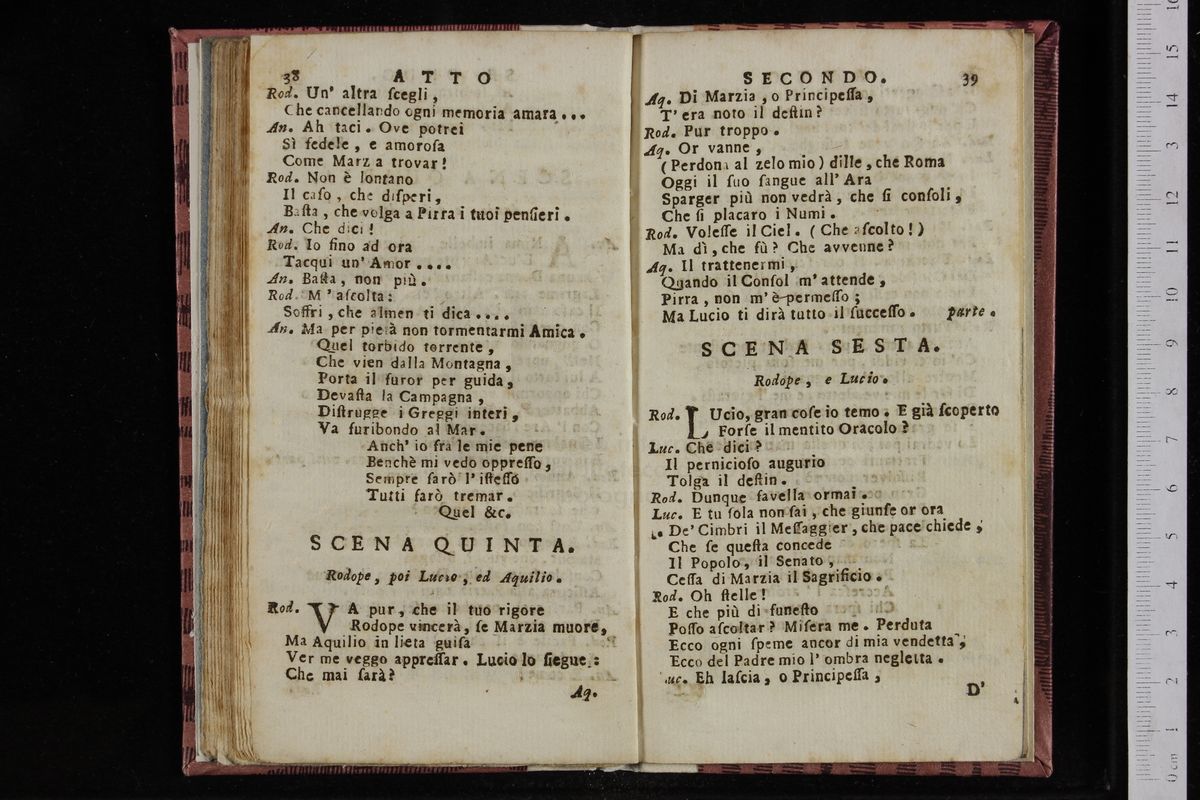 38 ATTO
Rod. Un' altra ſcegli,
Che cancellando ogni memoria amara...
An. Ah taci. Ove potrei
Sì fedele, e amoroſa
Come Marz a trovar!
Rod. Non è lontano
Il caſo, che diſperi,
Baſta, che volga a Pirra i tuoi penſieri.
An. Che dici!
Rod. Io fino ad ora
Tacqui un' Amor....
An. Baſta, non più.
Rod. M' aſcolta:
Soffri, che almen ti dica....
An. Ma per pietà non tormentarmi Amica.
Quel torbido torrente,
Che vien dalla Montagna,
Porta il furor per guida,
Devaſta la Campagna,
Diſtrugge i Greggi interi,
Va furibondo al Mar.
Anch' io fra le mie pene
Benchè mi vedo oppreſſo,
Sempre farò l' iſteſſo
Tutti farò tremar.
Quel &c.
SCENA QUINTA.
Rodope, poi Lucio, ed Aquilio.
Rod. VA pur, che il tuo rigore
Rodope vincerà, ſe Marzia muore,
Ma Aquilio in lieta guiſa
Ver me veggo appreſſar. Lucio lo ſiegue:
Che mai ſarà?
Aq.
SECONDO. 39
Aq. Di Marzia, o Principeſſa,
T' era noto il deſtin?
Rod. Pur troppo.
Aq. Or vanne,
(Perdona al zelo mio) dille, che Roma
Oggi il ſuo ſangue all' Ara
Sparger più non vedrà, che ſi conſoli,
Che ſi placaro i Numi.
Rod. Voleſſe il Ciel. (Che aſcolto!)
Ma dì, che fù? Che avvenne?
Aq. Il trattenermi,
Quando il Conſol m' attende,
Pirra, non m' è permeſſo;
Ma Lucio ti dirà tutto il ſucceſſo. parte.
SCENA SESTA.
Rodope, e Lucio.
Rod. LUcio, gran coſe io temo. E già ſcoperto
Forſe il mentito Oracolo?
Luc. Che dici?
Il pernicioſo augurio
Tolga il deſtin.
Rod. Dunque favella ormai.
Luc. E tu ſola non ſai, che giunſe or ora
De' Cimbri il Meſſaggier, che pace chiede,
Che ſe queſta concede
Il Popolo, il Senato,
Ceſſa di Marzia il Sagrificio.
Rod. Oh ſtelle!
E che più di funeſto
Poſſo aſcoltar? Miſera me. Perduta
Ecco ogni ſpeme ancor di mia vendetta;
Ecco del Padre mio l' ombra negletta.
uc. Eh laſcia, o Principeſſa,
D'
0 cm 1 2 3 4 5 6 7 8 9 10 11 12 13 14 15 16